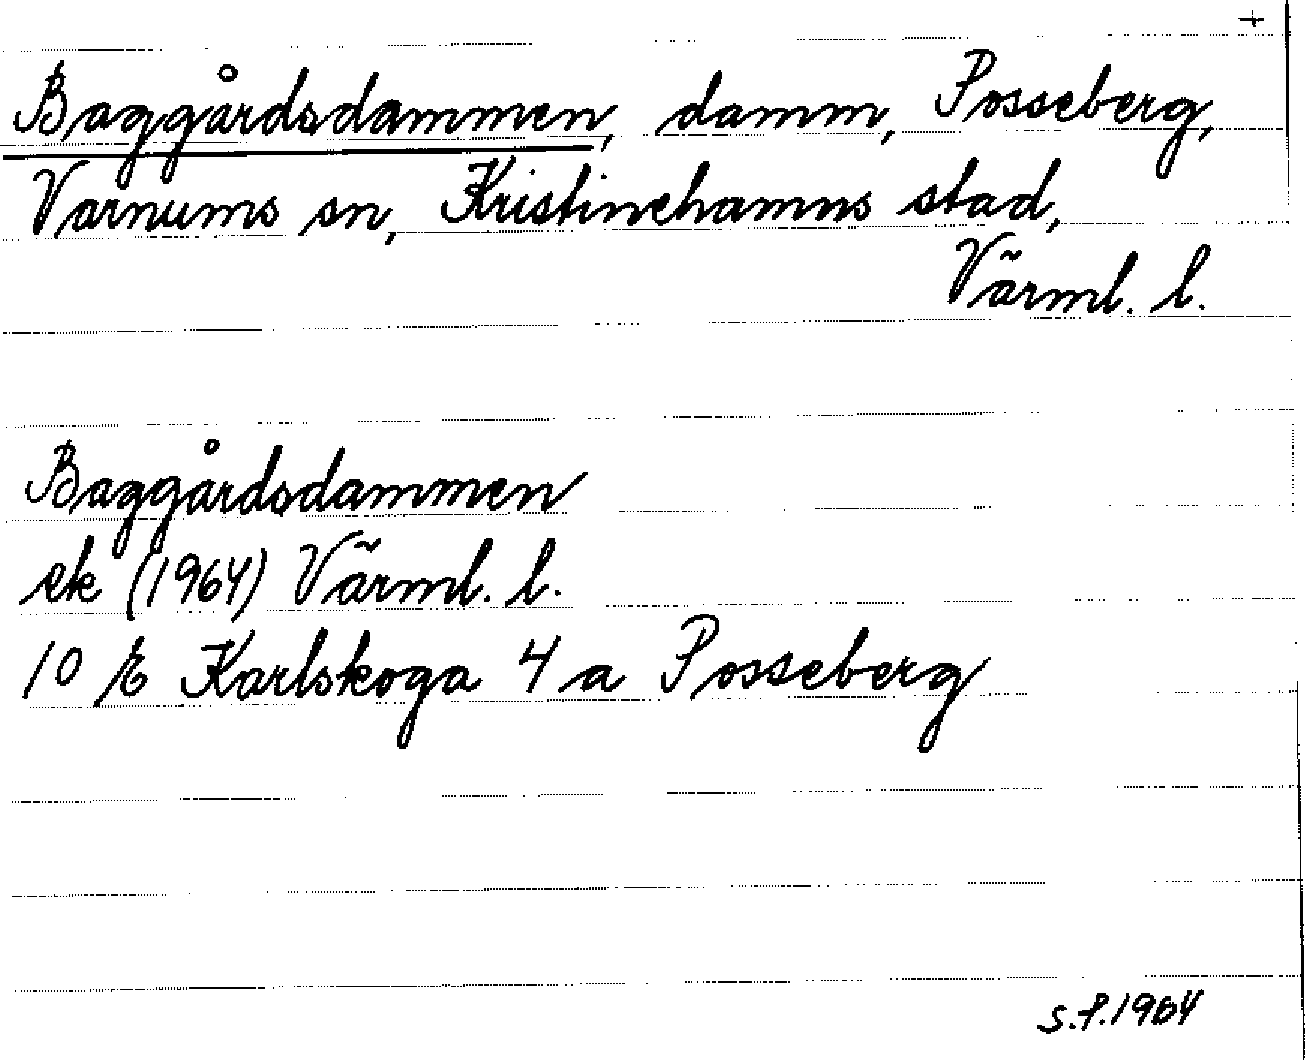 +
Baggårdsdammen, damm, Posseberg,
Varnums sn, Kristinehamns stad,
Värml. l.
Baggårdsdammen
ek (1964) Värml. l.
10 E Karlskoga 4 a Posseberg
S.P.1964